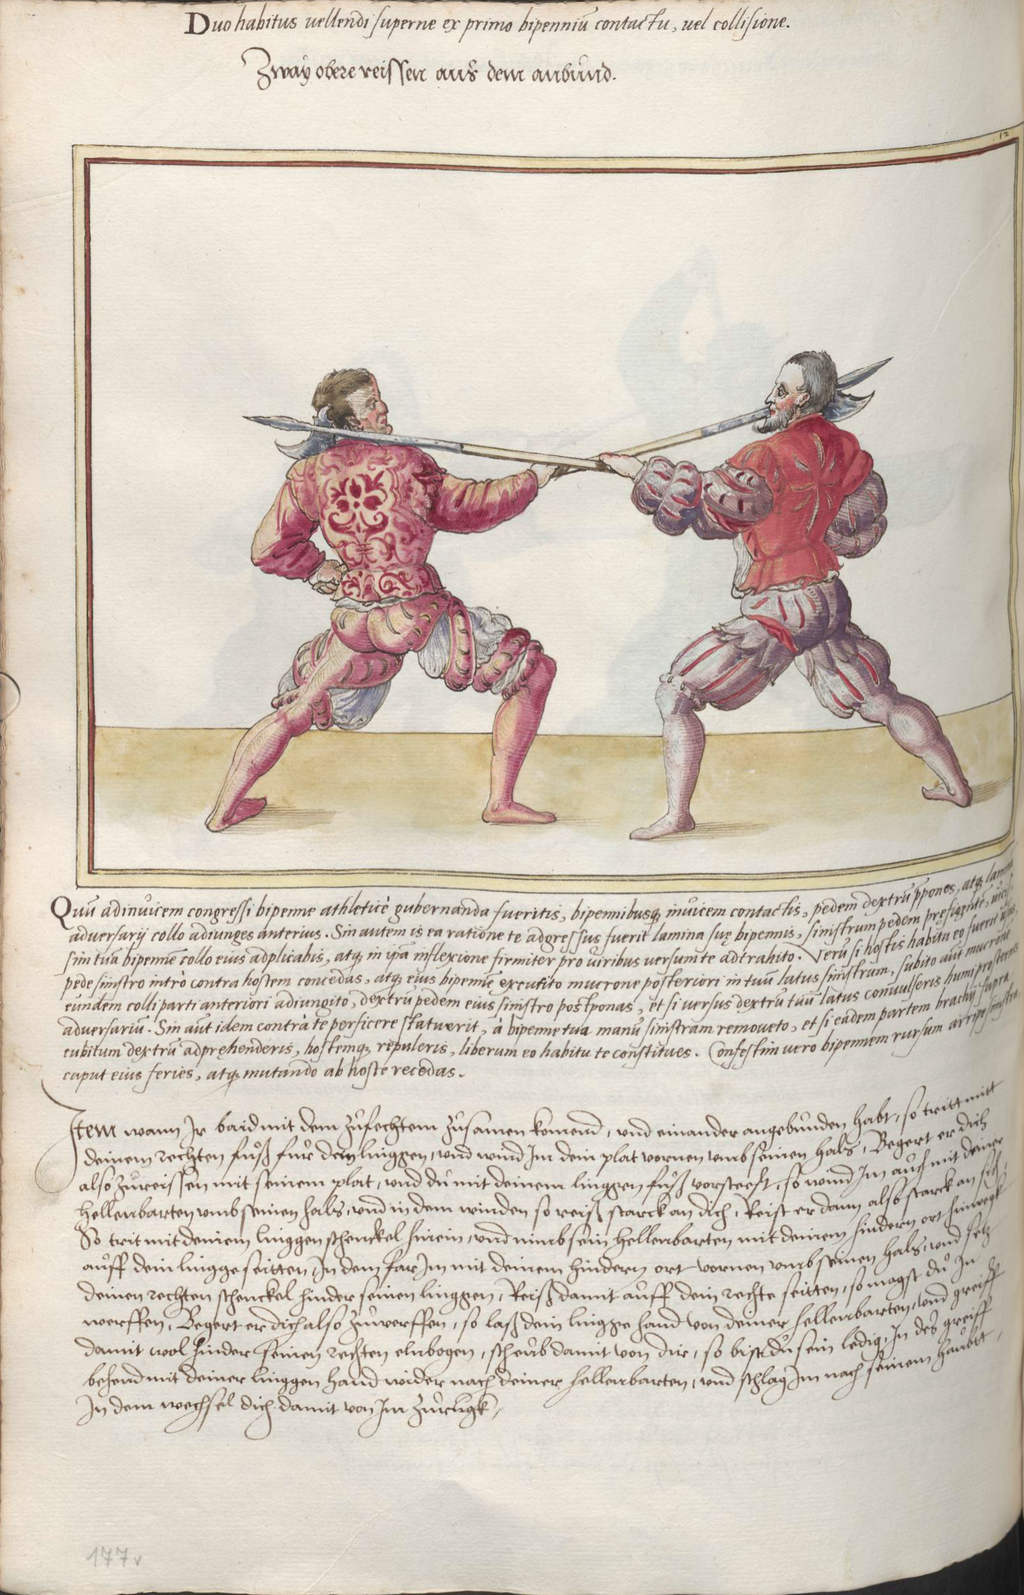 Duo habitus vellendi superne ex primo bipenniū contactu, vel collisione.
Zway obere reissen aus dem anbund.
12
Quū adinuicem congressi bipenne athleticè gubernanda fueritis, bipennibusq; inuicem contactis, pedem dextrū ppones, atq; lamina
adversarij collo adiunges anterius. Sin autem is ea ratione te adgressus fuerit lamina suę bipennis, sinistrum pedem præfigente,
sim tua bipenne collo eius adplicabis, atq; in ipsa inflexione firmiter pro viribus versum te adtrahito. Verū si hostis habitu eo fuerit usus,
pede sinistro intrò contra hostem concedas, atq; eius bipenne excutito mucrone posteriori in tuū latus sinistrum, subito aūt mucrone
eundem colli parti anteriori adiungito, dextrū pedem eius sinistro postponas, et si versus dextrū tuū latus convulseris humi prosternes
adversariū. Sin aūt idem contrà te perficere statuerit, à bipenne tua manū sinistram removeto, et si eadem partem brachij supra
cubitum dextrū adprehenderis, hostemq; repuleris, liberum eo habitu te constitues. Confestim vero bipennem rursum arripe sinistra,
caput eius feries, atq; mutando ab hoste recedas.
Item wann Ir baid mit dem zůfechten zůsamen komend, und einander angebunden habt, so tritt mitt
deinem rechten fůß für den linggen, und wind Im dein plat vornen umb seinen hals, Begert er dich
also zůreissen mit seinem plat, und du mit deinem linggen fůß vorsteest, so wind Im auch mit deiner
hellenbarten umb seinen hals, und in dem winden so reiß starck an dich, Reist er dann also starck an sich,
So trit mit deinem linggen schenckel hinein, und nimb sein hellenbarten mit deinem hindern ort hinwegk
auff dein lingge seitten, In dem far Im mit deinem hindern ort vornen umb seinen hals, und setz
deinen rechten schenckel hinder seinen linggen, Reiß damit auff dein rechte seitten, so magst du In
werffen, Begert er dich also zůwerffen, so laß dein lingge hand von deiner hellenbarten, und greiff
damit wol hinder seinen rechten elnbogen, scheub damit von dir, so bist du sein ledig, In des greiff
behend mit deiner linggen hand wider nach deiner hellenbarten, und schlag Im nach seinem haubt,
In dem wechsel dich damit von Im zůrugk,
177v